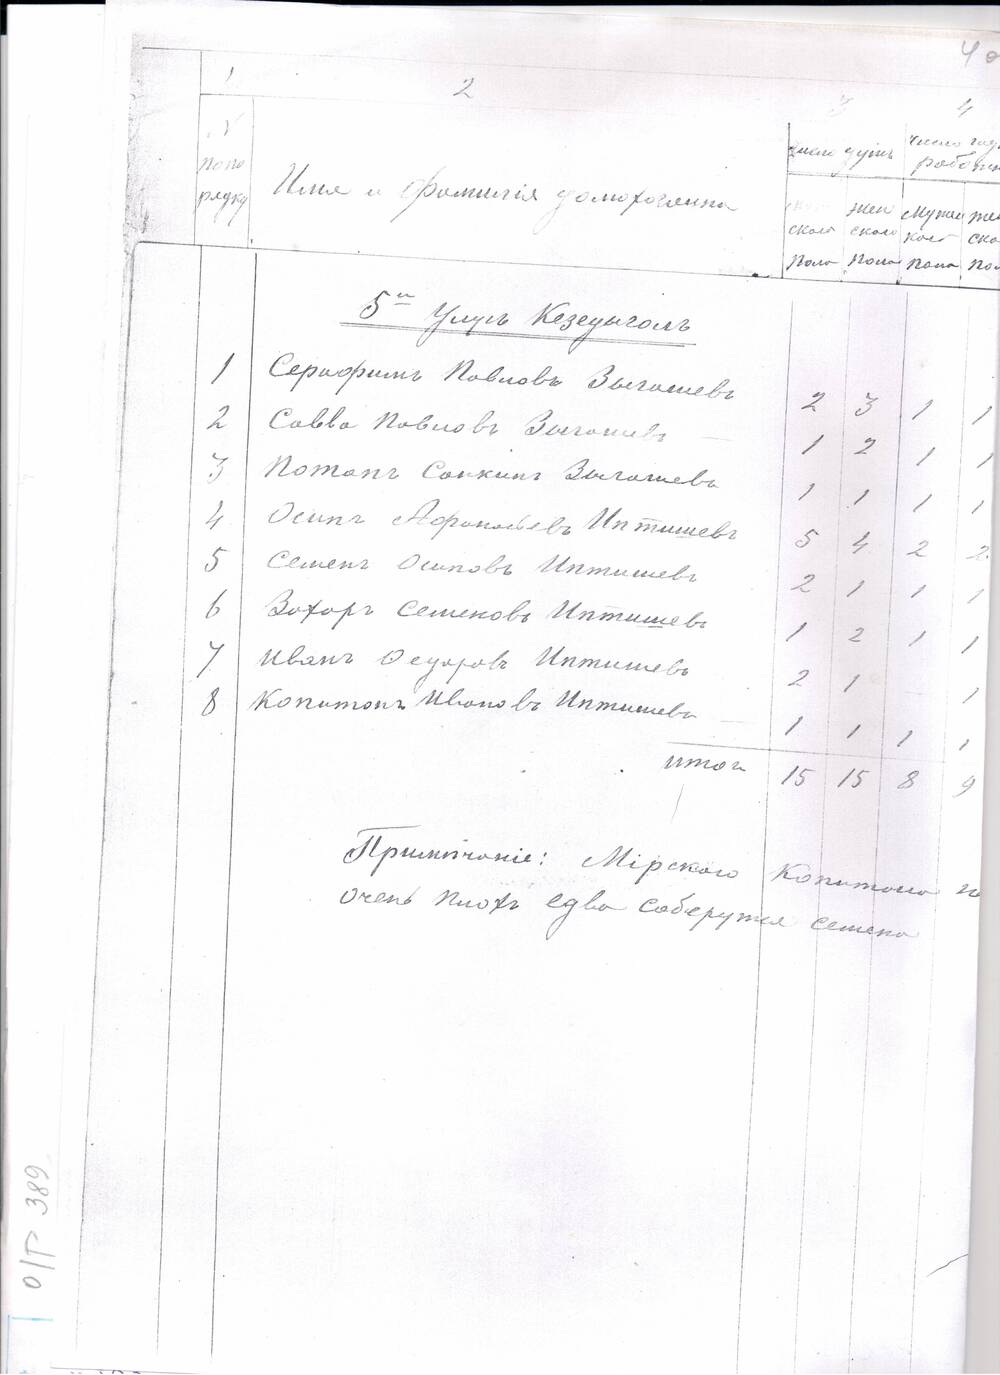 40
1 2 3 4
N попо рядку
Имя и фамилія домохозяина
число душъ
число год. работн
ского пола
Жен ского пола
Мужск кого пола
жен ско по
5й Улусъ Кезедыголъ
1 Серафимъ Павловъ Зыгашевъ 2 3 1 1
2 Савва Павловъ Зыгашевъ — 1 2 1 1
3 Потапъ Санкинъ Зыгашевъ 1 1 1 1
4 Осипъ Афанасьевъ Иптишевъ 5 4 2 2
5 Семенъ Осиповъ Иптишевъ 2 1 1 1
6 Захаръ Семеновъ Иптишевъ 1 2 1 1
7 Иванъ Федоровъ Иптишевъ 2 1 1
8 Капитонъ Ивановъ Иптишевъ — 1 1 1 1
итого 15 15 8 9
Примѣчаніе: Мірского Капитала
очень плохъ едва соберутся семена
О/Г 389